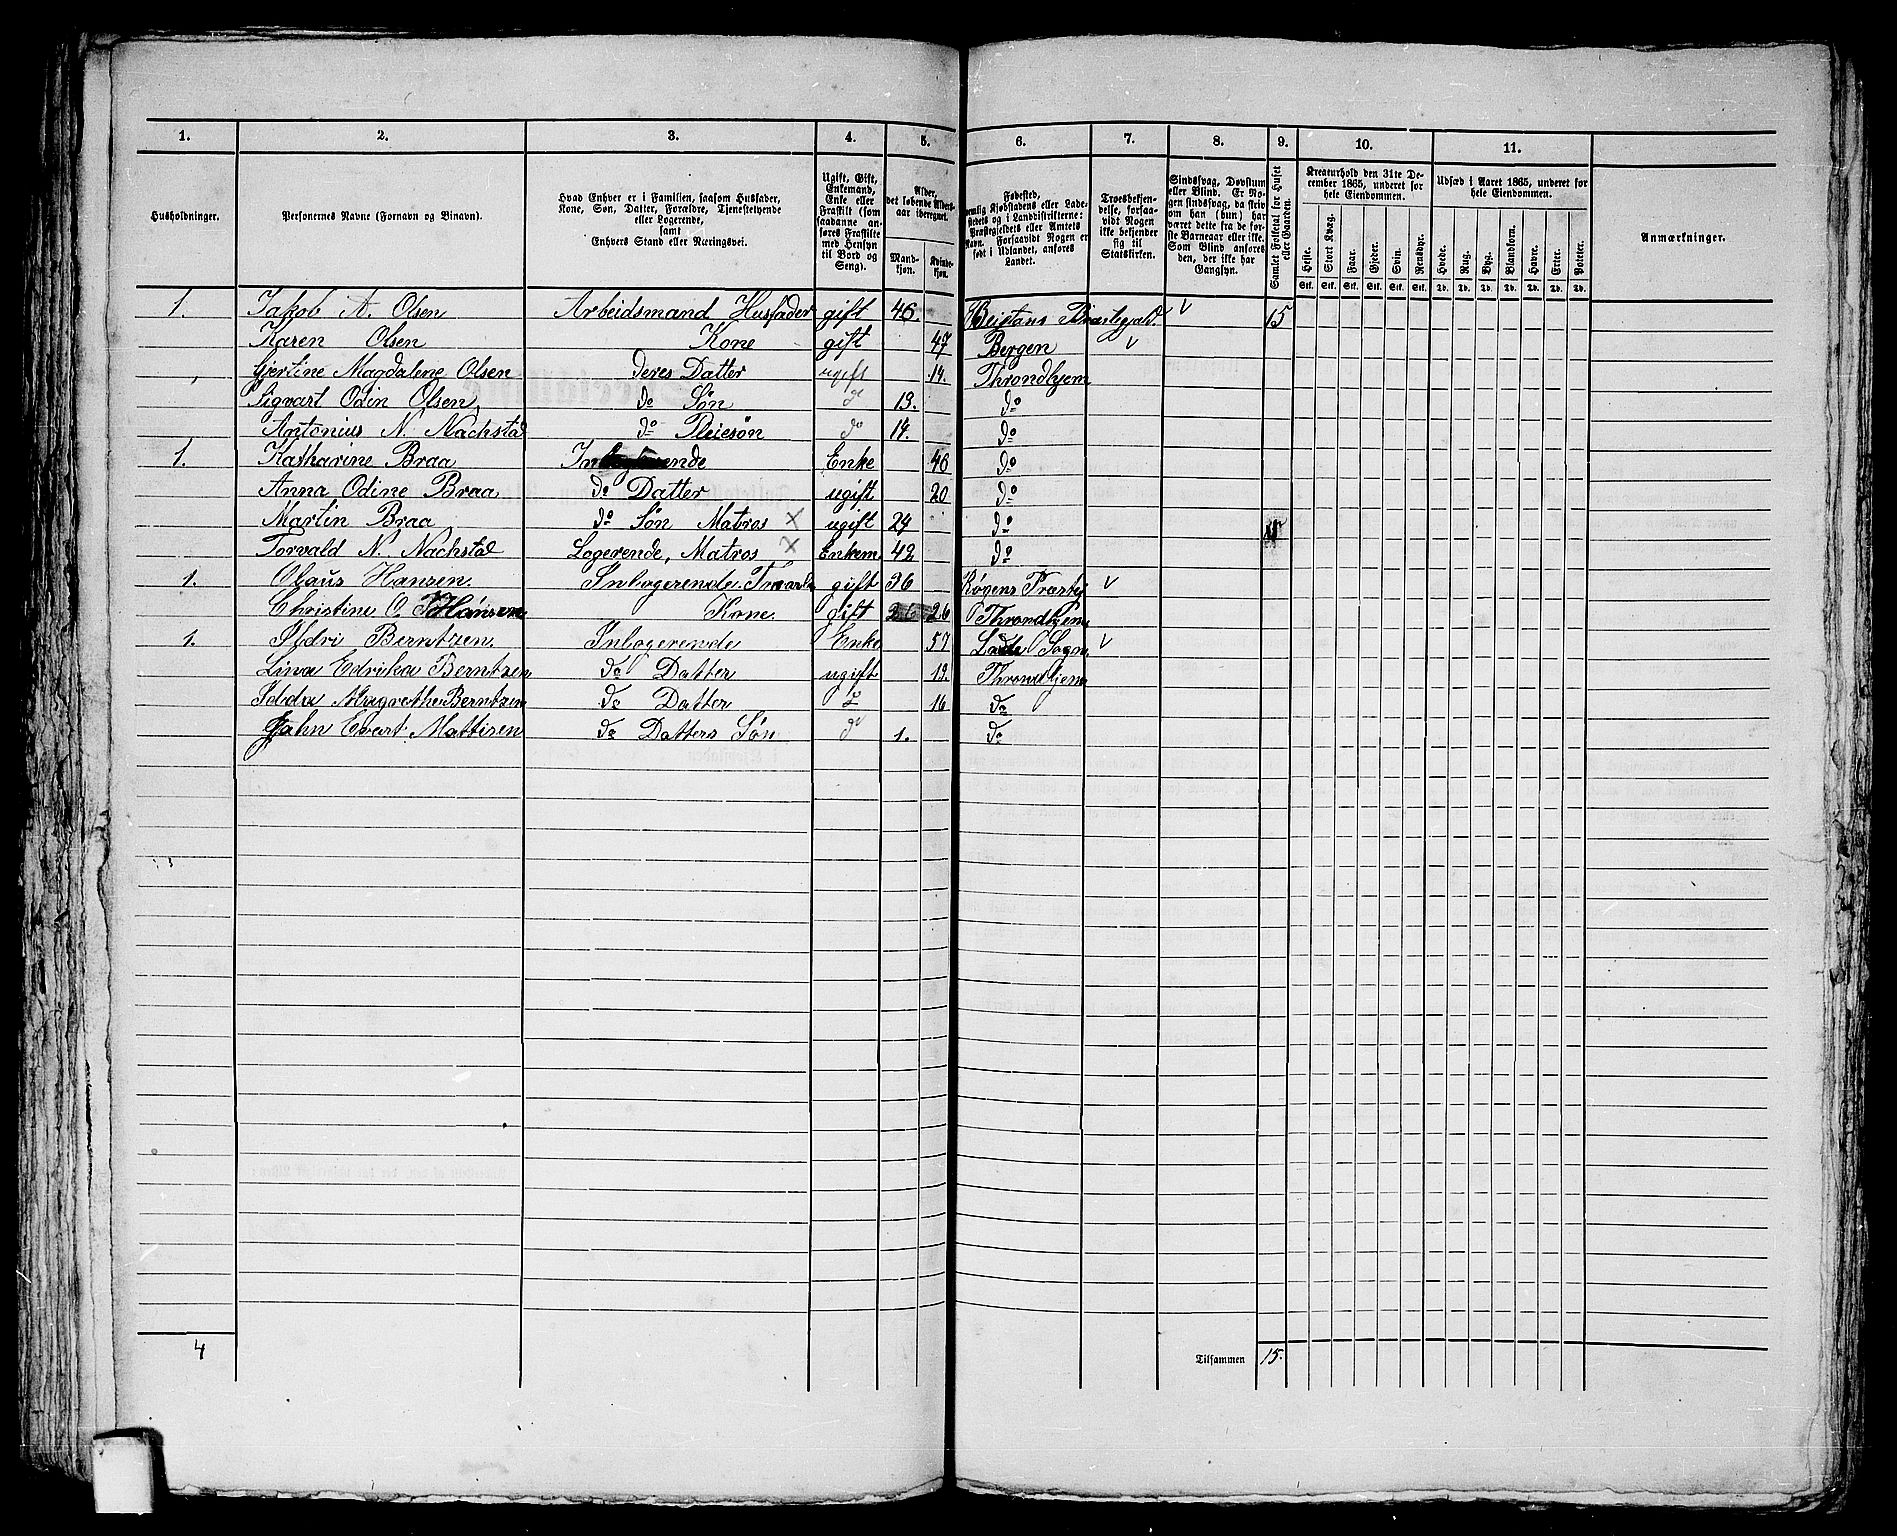 1. 2. 3. 4. 5. 6. 7. 8. 9. 10. 11.
Husholdninger.
Personernes Navne (Fornavn og Binavn).
Hvad Enhver er i Familien, saasom Husfader,
Kone, Søn, Datter, Forældre, Tjenestetyende
eller Logerende,
samt
Enhvers Stand eller Næringsvei.
Ugift, Gift,
Enkemand,
Enke eller
Fraskilt (som
saadanne an-
føres Fraskilte
med Hensyn
til Bord og
Seng).
Alder,
det løbende Alders-
aar iberegnet.
Mand-
kjøn.
Kvinde-
kjøn.
Fødested,
nemlig Kjøbstadens eller Lade-
stedets og i Landdistrikterne:
Præstegjeldets eller Amtets
Navn. Forsaavidt Nogen er
født i Udlandet, anføres
Landet.
Troesbekjen-
delse, forsaa-
vidt Nogen
ikke bekjender
sig til
Statskirken.
Sindssvag, Døvstum
eller Blind. Er No-
gen sindssvag, da skriv
om han (hun) har
været dette fra de før-
ste Barneaar eller ikke.
Som Blind anføres
den, der ikke har
Gangsyn.
Samlet Folketal for Huset
eller Gaarden.
Kreaturhold den 31te De-
cember 1865, underet for
hele Eiendommen.
Heste. Stort Kvæg. Faar. Gjeder. Svin. Rensdyr.
Stk. Stk. Stk. Stk. Stk. Stk.
Udsæd i Aaret 1865, underet for
hele Eiendommen.
Hvede. Rug. Byg. Blandkorn. Havre. Erter. Poteter.
Td. Td. Td. Td. Td. Td. Td.
Anmærkninger.
1. Jakob A. Olsen Arbeidsmand Husfader gift 46. Beistans v 15
Karen Olsen Kone gift 47 Bergen v
Gjertine Magdalene Olsen deres Datter ugift 14. Throndhjem
Sigvart Odin Olsen do Søn do 13. do
Antonius N. Nachstad do Pleiesøn do 14. do
1. Katharine Braa Enke 46 do
Anna Odine Braa do Datter ugift 20 do
Martin Braa do Søn Matros x ugift 24 do
Torvald N. Nachstad Logerende, Matros x Enkem 42 do
1. Olaus Hansen Inlogerende gift 36 v
Christine O. Hansen Kone gift 26 26 Throndhjem
1. Berntzen. Inlogerende Enke 57 Lade Sogn v
Lina Edrika Berntzen do Datter ugift 19. Throndhjem
Idda Margrethe Berntzen do Datter do 16 do
Jahn Evart Mattisen do Datters Søn do 1. do
4 Tilsammen 15.